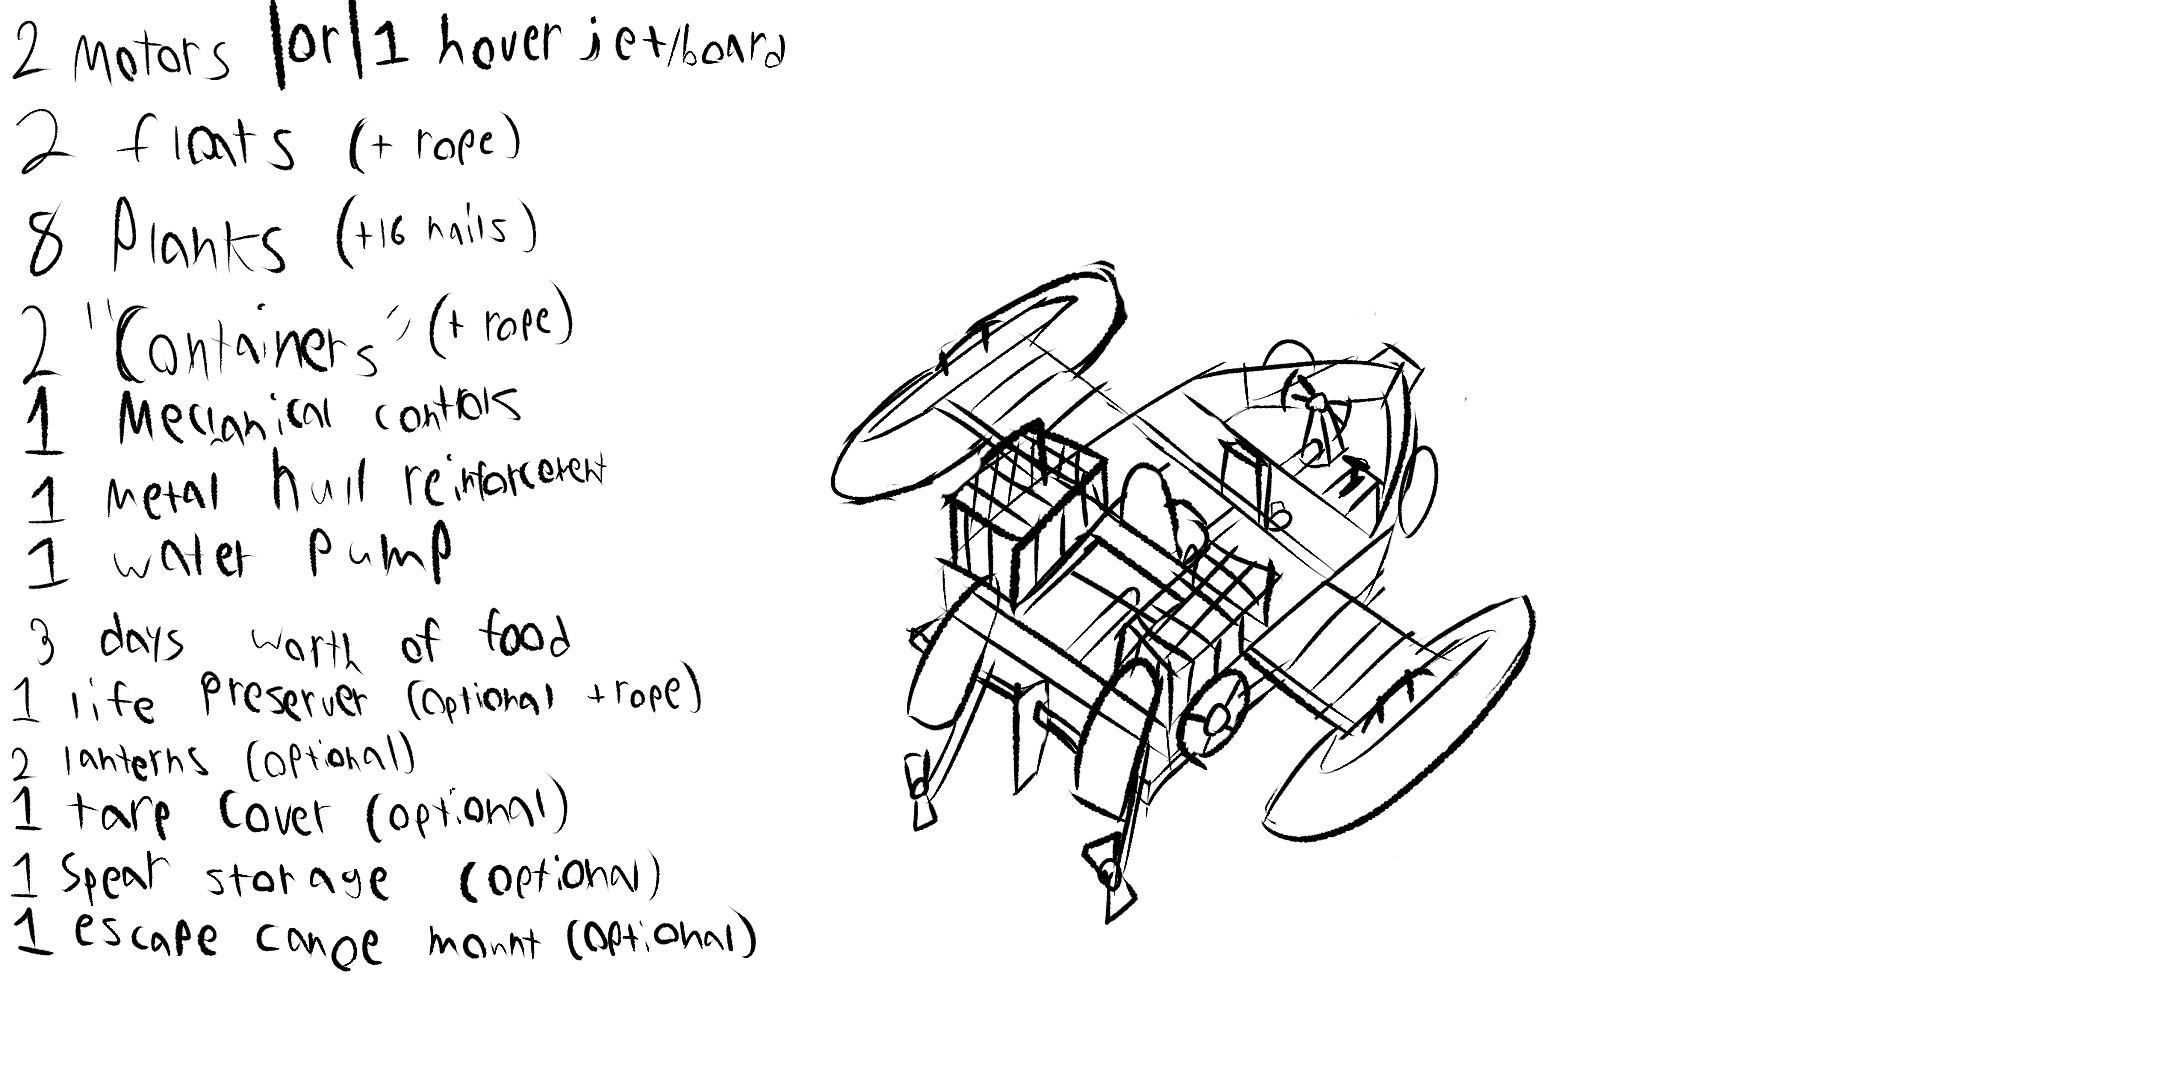 2 Motors |or| 1 hover jet/board
2 floats (+ rope)
8 Planks (+16 nails)
2 "Containers" (+ rope)
1 Mechanical controls
1 Metal hull reinforcement
1 water pump
3 days worth of food
1 life preserver (optional + rope)
2 lanterns (optional)
1 tarp cover (optional)
1 Spear storage (optional)
1 escape canoe mount (optional)